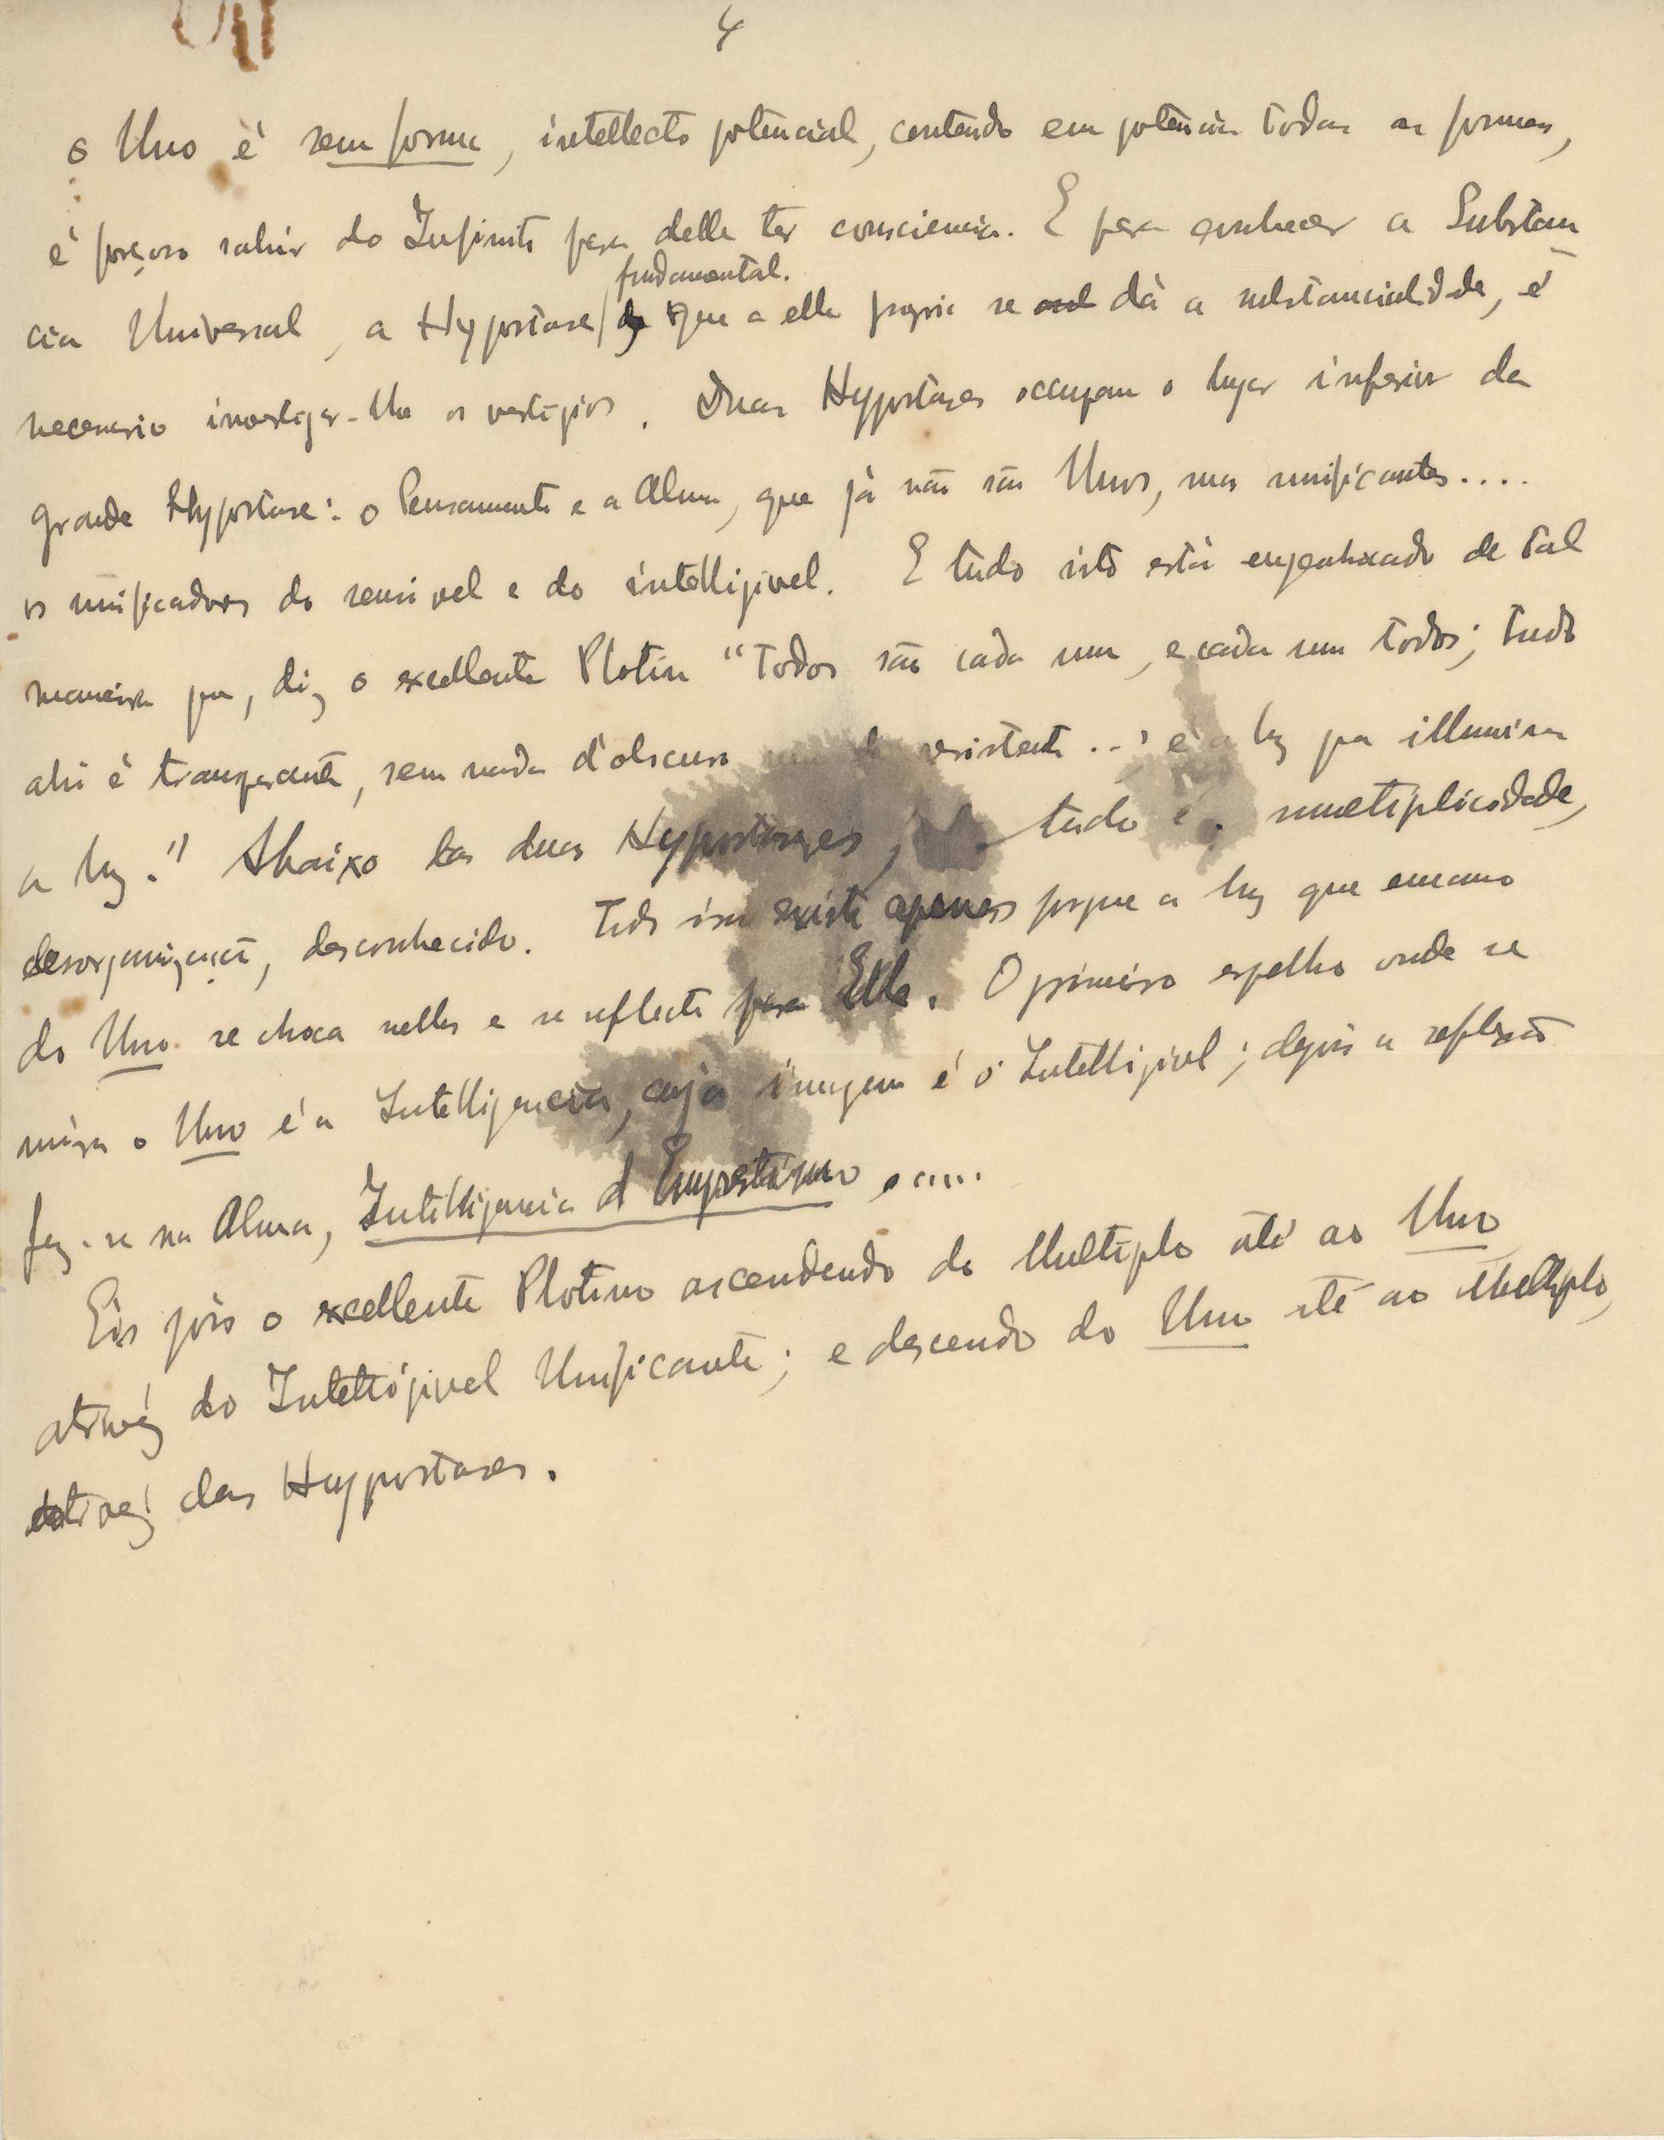 4
o Uno é sem forma, intellecto potencial, contendo em potencia todas as formas,
é forçoso sahir do Infinito para delle ter consciencia. E para conhecer a Substan
fundamental.
cia Universal, a Hypostase que a elle propria se dá a substancialidade, é
necessario investigar-lhe os vestigios. Duas Hypostases occupam o lugar inferior da
grande Hypostase: o Pensamento e a Alma, que já não são Unos, mas unificantes....
os unificadores do sensivel e do intelligivel. E tudo isto está engenhado de tal
maneira que, diz o excellente Plotin "Todos são cada um, e cada um todos; tudo
ahi é transparente, sem nada d'obscuro resistente ... é a luz que illumina
a luz." Abaixo das duas Hypostases, tudo é multiplicidade,
desorganização, desconhecido. Tudo isso existe apenas porque a luz que emana
do Uno se choca nelles e se reflecte para Elle. O primeiro espelho onde se
mira o Uno é a Intelligencia, cuja imagem é o Intelligivel; depois a reflexão
faz-se na Alma, Intelligencia d'Emprestimo
Eis pois o excellente Plotino ascendendo do Multiplo até ao Uno
atravéz do Intelligivel Unificante; e descendo do Uno até ao Multiplo,
atravéz das Hypostases.